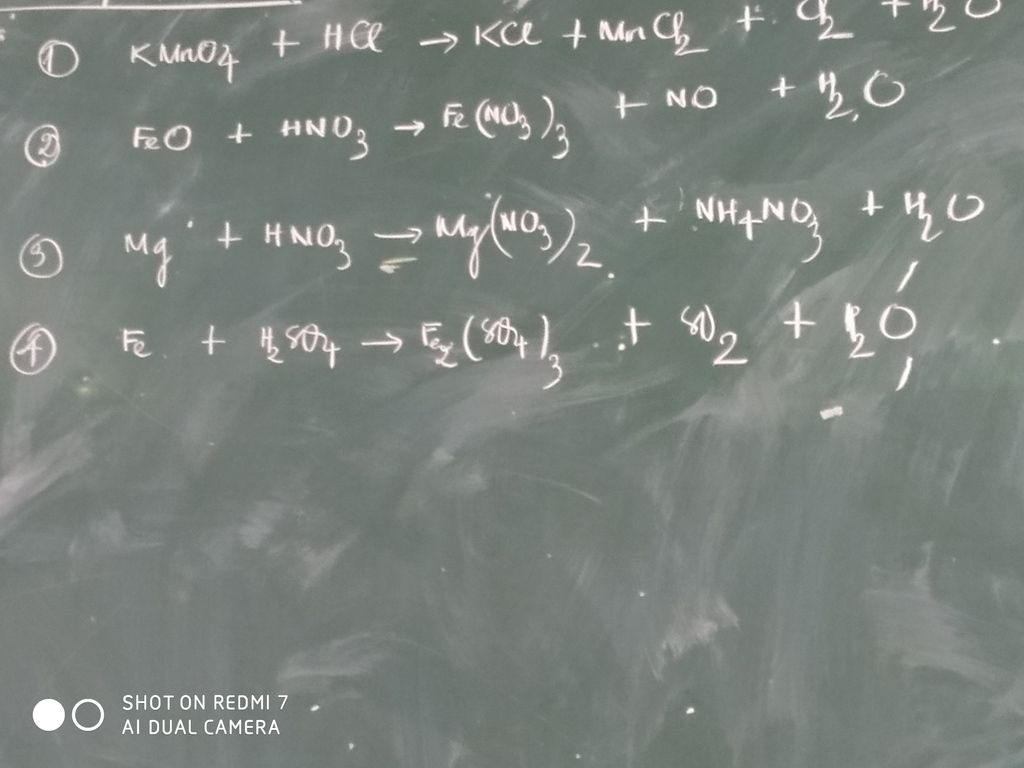 ① KMnO₄ + HCl → KCl + MnCl₂ + Cl₂ + H₂O
② FeO + HNO₃ → Fe(NO₃)₃ + NO + H₂O
③ Mg + HNO₃ → Mg(NO₃)₂ + NH₄NO₃ + H₂O
④ Fe + H₂SO₄ → Fe₂(SO₄)₃ + SO₂ + H₂O
SHOT ON REDMI 7
AI DUAL CAMERA